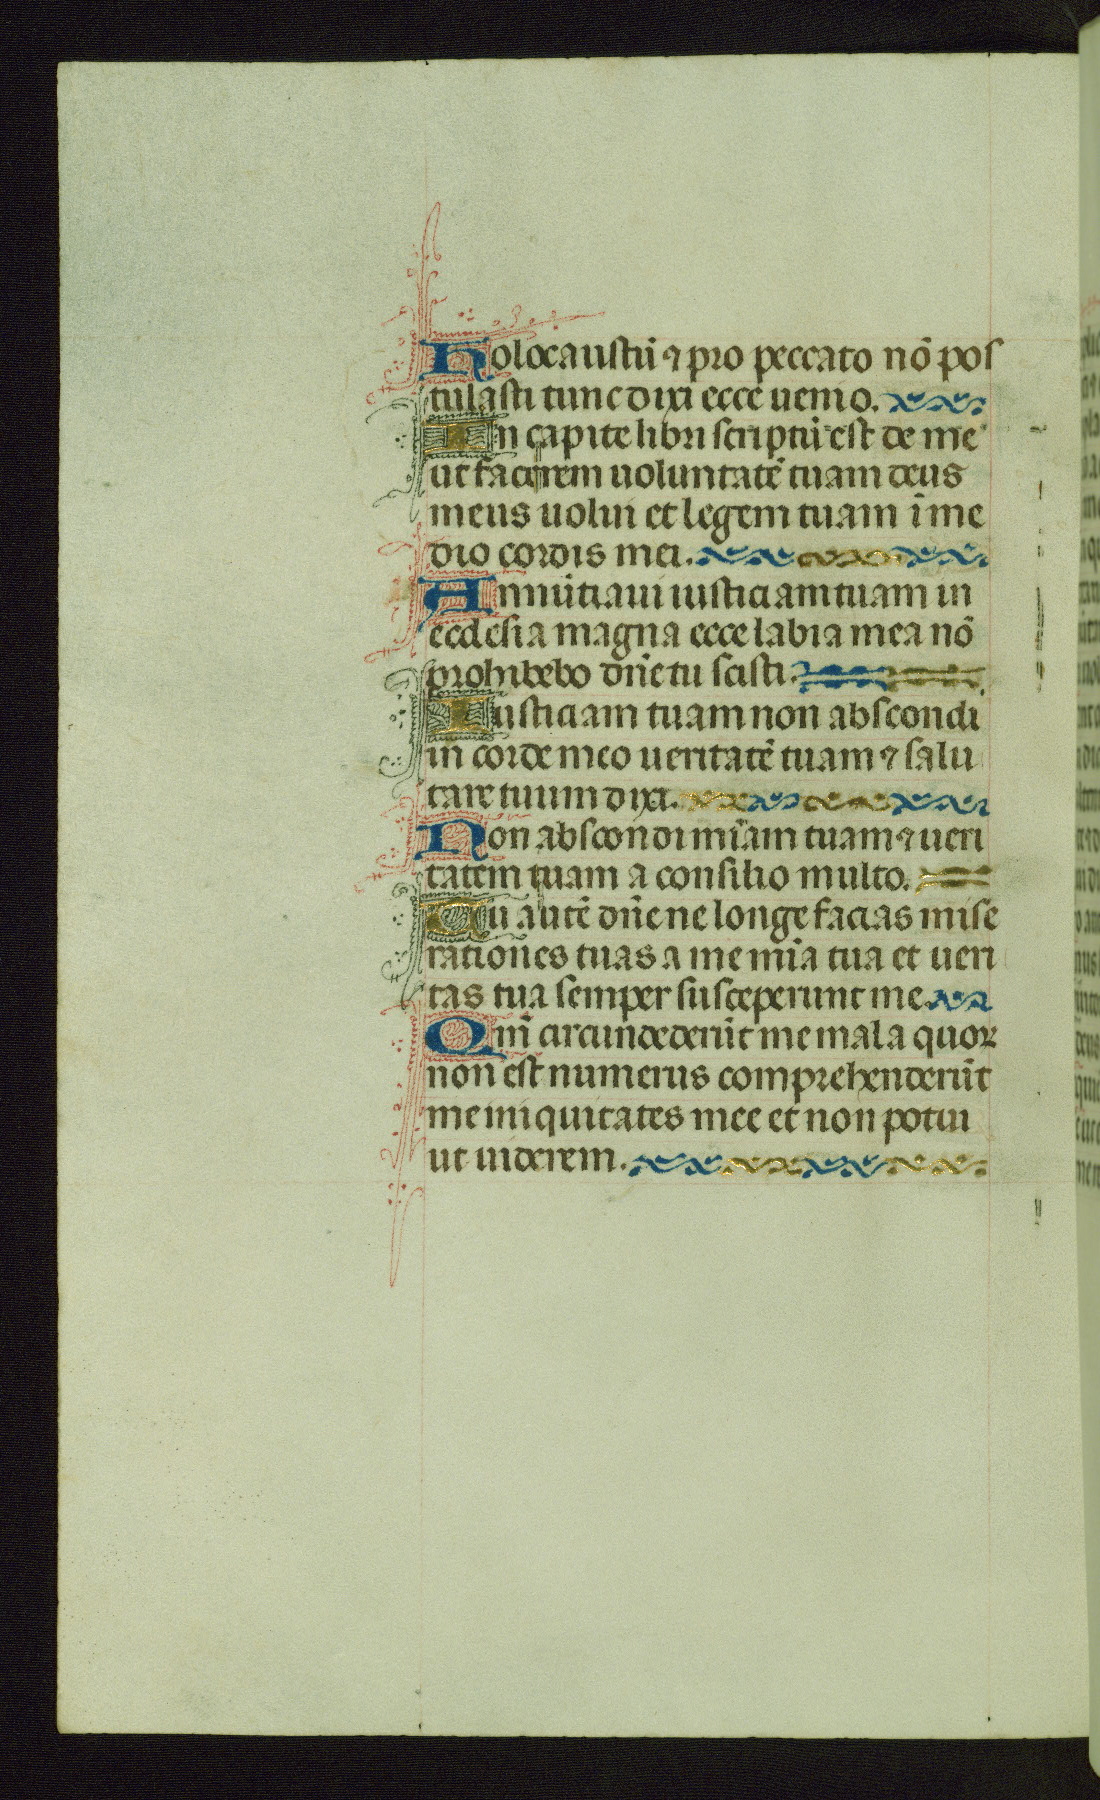 Holocaustū ⁊ pro peccato nō pos
tulasti tunc dixi ecce uenio.
In capite libri scriptū est de me
ut facerem uoluntatē tuam deus
meus uolui et legem tuam ī me
dio cordis mei.
Annūtiaui iusticiam tuam in
ecclesia magna ecce labia mea nō
prohibebo dn̄e tu scisti.
Iusticiam tuam non abscondi
in corde meo ueritatē tuam ⁊ salu
tare tuum dixi.
Non abscondi mīam tuam ⁊ ueri
tatem tuam a consilio multo.
Tu autē dn̄e ne longe facias mise
rationes tuas a me mīa tua et ueri
tas tua semper susceperunt me.
Qm̄ circumdederūt me mala quoꝝ
non est numerus comprehenderūt
me iniquitates mee et non potui
ut uiderem.